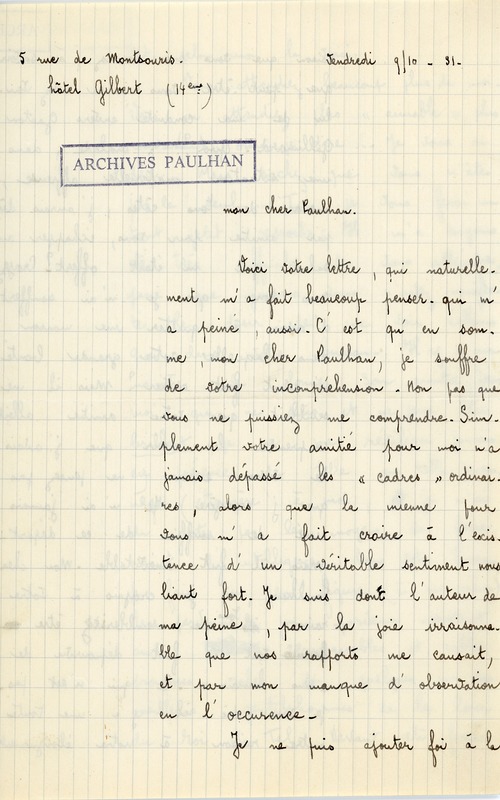 5 rue de Montsouris. Vendredi 9/10 - 31-
hôtel Gilbert (14eme)
ARCHIVES PAULHAN
mon cher Paulhan.
Voici votre lettre, qui naturelle-
ment m'a fait beaucoup penser. qui m'
a peiné, aussi. C'est qu'en som-
me, mon cher Paulhan, je souffre
de votre incompréhension. Non pas que
vous ne puissiez me comprendre. Sim-
plement votre amitié pour moi n'a
jamais dépassé les « cadres » ordinai-
res, alors que la mienne pour
vous m'a fait croire à l'exis-
tence d'un véritable sentiment nous
liant fort. Je suis dont l'auteur de
ma peine, par la joie irraisonna-
ble que nos rapports me causait,
et par mon manque d'observation
en l'occurence -
Je ne puis ajouter foi à la